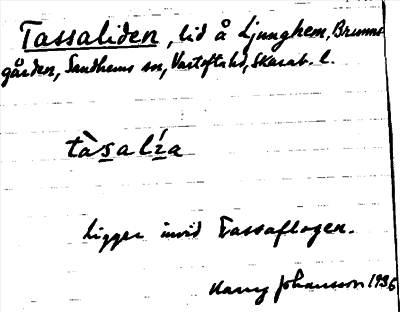 Tassaliden, lid å Ljunghem, Brunns
gården, Sandhems sn, Vartofta hd, Skarab. l.
tàsalía
ligger invid Tassaflagen.
Harry Johansson 1936